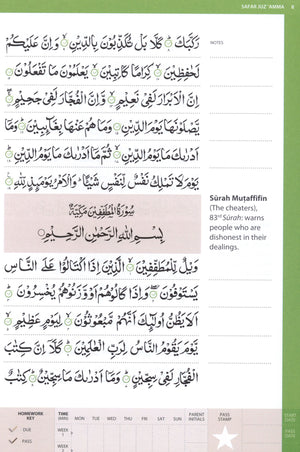 SAFAR JUZ 'AMMA 8
رَكَّبَكَ كَلَّا بَلْ تُكَذِّبُوْنَ بِالدِّيْنِ وَاِنَّ عَلَيْكُمْ
NOTES
لَحٰفِظِيْنَ كِرَامًا كَاتِبِيْنَ يَعْلَمُوْنَ مَا تَفْعَلُوْنَ
اِنَّ الْاَبْرَارَ لَفِيْ نَعِيْمٍ وَاِنَّ الْفُجَّارَ لَفِيْ جَحِيْمٍ
يَصْلَوْنَهَا يَوْمَ الدِّيْنِ وَمَا هُمْ عَنْهَا بِغَآئِبِيْنَ وَمَآ
اَدْرٰىكَ مَا يَوْمُ الدِّيْنِ ثُمَّ مَآ اَدْرٰىكَ مَا يَوْمُ الدِّيْنِ
يَوْمَ لَا تَمْلِكُ نَفْسٌ لِّنَفْسٍ شَيْئًا وَالْاَمْرُ يَوْمَئِذٍ لِّلّٰهِ
سُوْرَةُ الْمُطَفِّفِيْنَ مَكِّيَّةٌ
بِسْمِ اللّٰهِ الرَّحْمٰنِ الرَّحِيْمِ
Sūrah Muṭaffifīn
(The cheaters),
83rd Sūrah: warns
people who are
dishonest in their
dealings.
وَيْلٌ لِّلْمُطَفِّفِيْنَ الَّذِيْنَ اِذَا اكْتَالُوْا عَلَى النَّاسِ
يَسْتَوْفُوْنَ وَاِذَا كَالُوْهُمْ اَوْ وَّزَنُوْهُمْ يُخْسِرُوْنَ
اَلَا يَظُنُّ اُولٰٓئِكَ اَنَّهُمْ مَّبْعُوْثُوْنَ لِيَوْمٍ عَظِيْمٍ
يَوْمَ يَقُوْمُ النَّاسُ لِرَبِّ الْعٰلَمِيْنَ كَلَّآ اِنَّ كِتٰبَ
الْفُجَّارِ لَفِيْ سِجِّيْنٍ وَمَآ اَدْرٰىكَ مَا سِجِّيْنٌ كِتٰبٌ
HOMEWORK KEY TIME (MIN) MON TUE WED THU FRI SAT SUN PARENT INITIALS PASS STAMP START DATE
DUE WEEK 1
PASS WEEK 2
PASS DATE